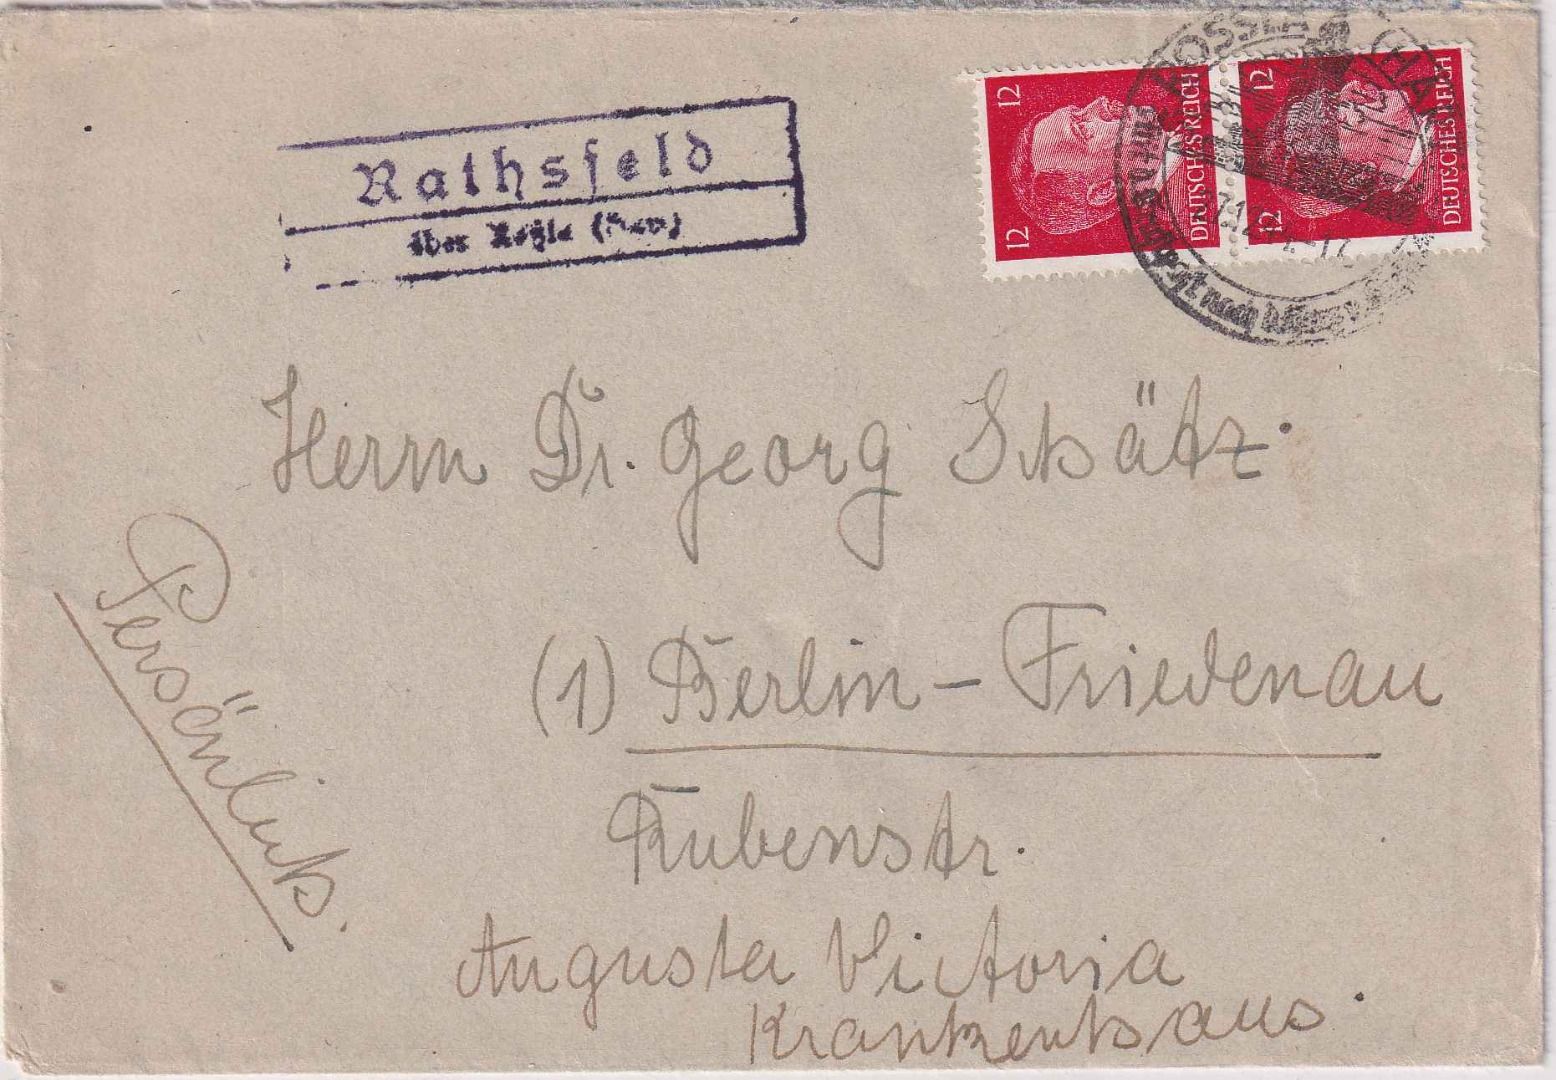 Rathsfeld
über Roßla (Harz)
12 12 DEUTSCHES REICH
12 12 DEUTSCHES REICH
ROSSLA (HARZ)
Herrn Dr. Georg Schätz.
(1) Berlin-Friedenau
Rubensstr.
Augusta Victoria
Krankenhaus.
Persönlich.